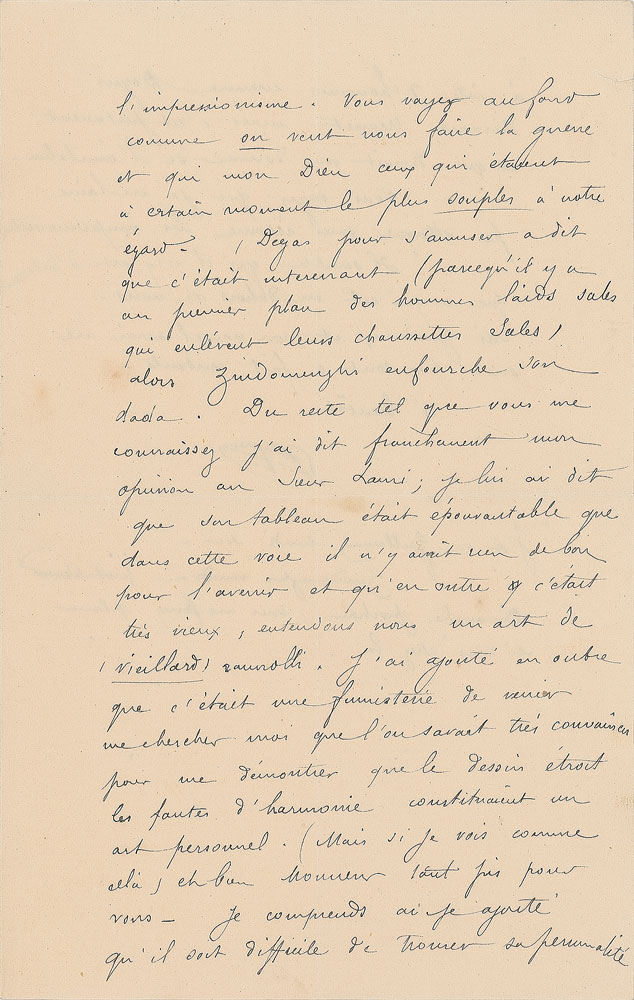 l'impressionisme. Vous voyez au fond
comme on veut nous faire la guerre
et qui mon Dieu ceux qui étaient
à certain moment le plus souples à notre
égard — (Degas pour s'amuser a dit
que c'était interessant (parcequ'il y a
au premier plan des hommes laids sales
qui enlèvent leurs chaussettes sales)
alors Zandomenghi enfourche son
dada. Du reste tel que vous me
connaissez j'ai dit franchement mon
opinion au Sieur ; je lui ai dit
que son tableau était épouvantable que
dans cette voie il n'y avait rien de bon
pour l'avenir et qu'en outre c'était
très vieux, entendons nous un art de
(vieillard) ramolli. J'ai ajouté en outre
que c'était une fumisterie de venir
me chercher moi que l'on savait très convaincu
pour me démontrer que le dessin étroit
les fautes d'harmonie constituaient un
art personnel. (Mais si je vois comme
cela) eh bien Monsieur tant pis pour
vous — Je comprends ai-je ajouté
qu'il soit difficile de trouver sa personnalité